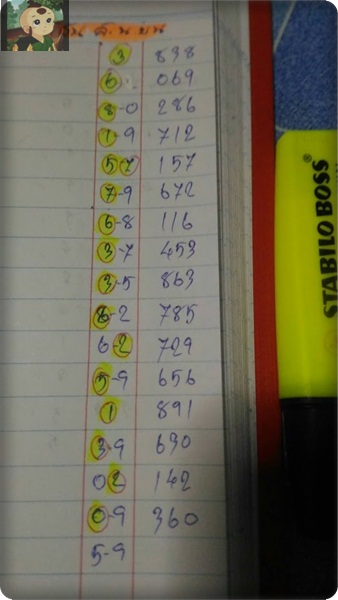 3 838
6 069
8-0 286
1-9 712
5-7 157
7-9 672
6-8 116
3-7 453
3-5 863
8-2 785
6-2 729
5-9 656
1 891
3-9 630
02 142
0-9 360
5-9
STABILO BOSS